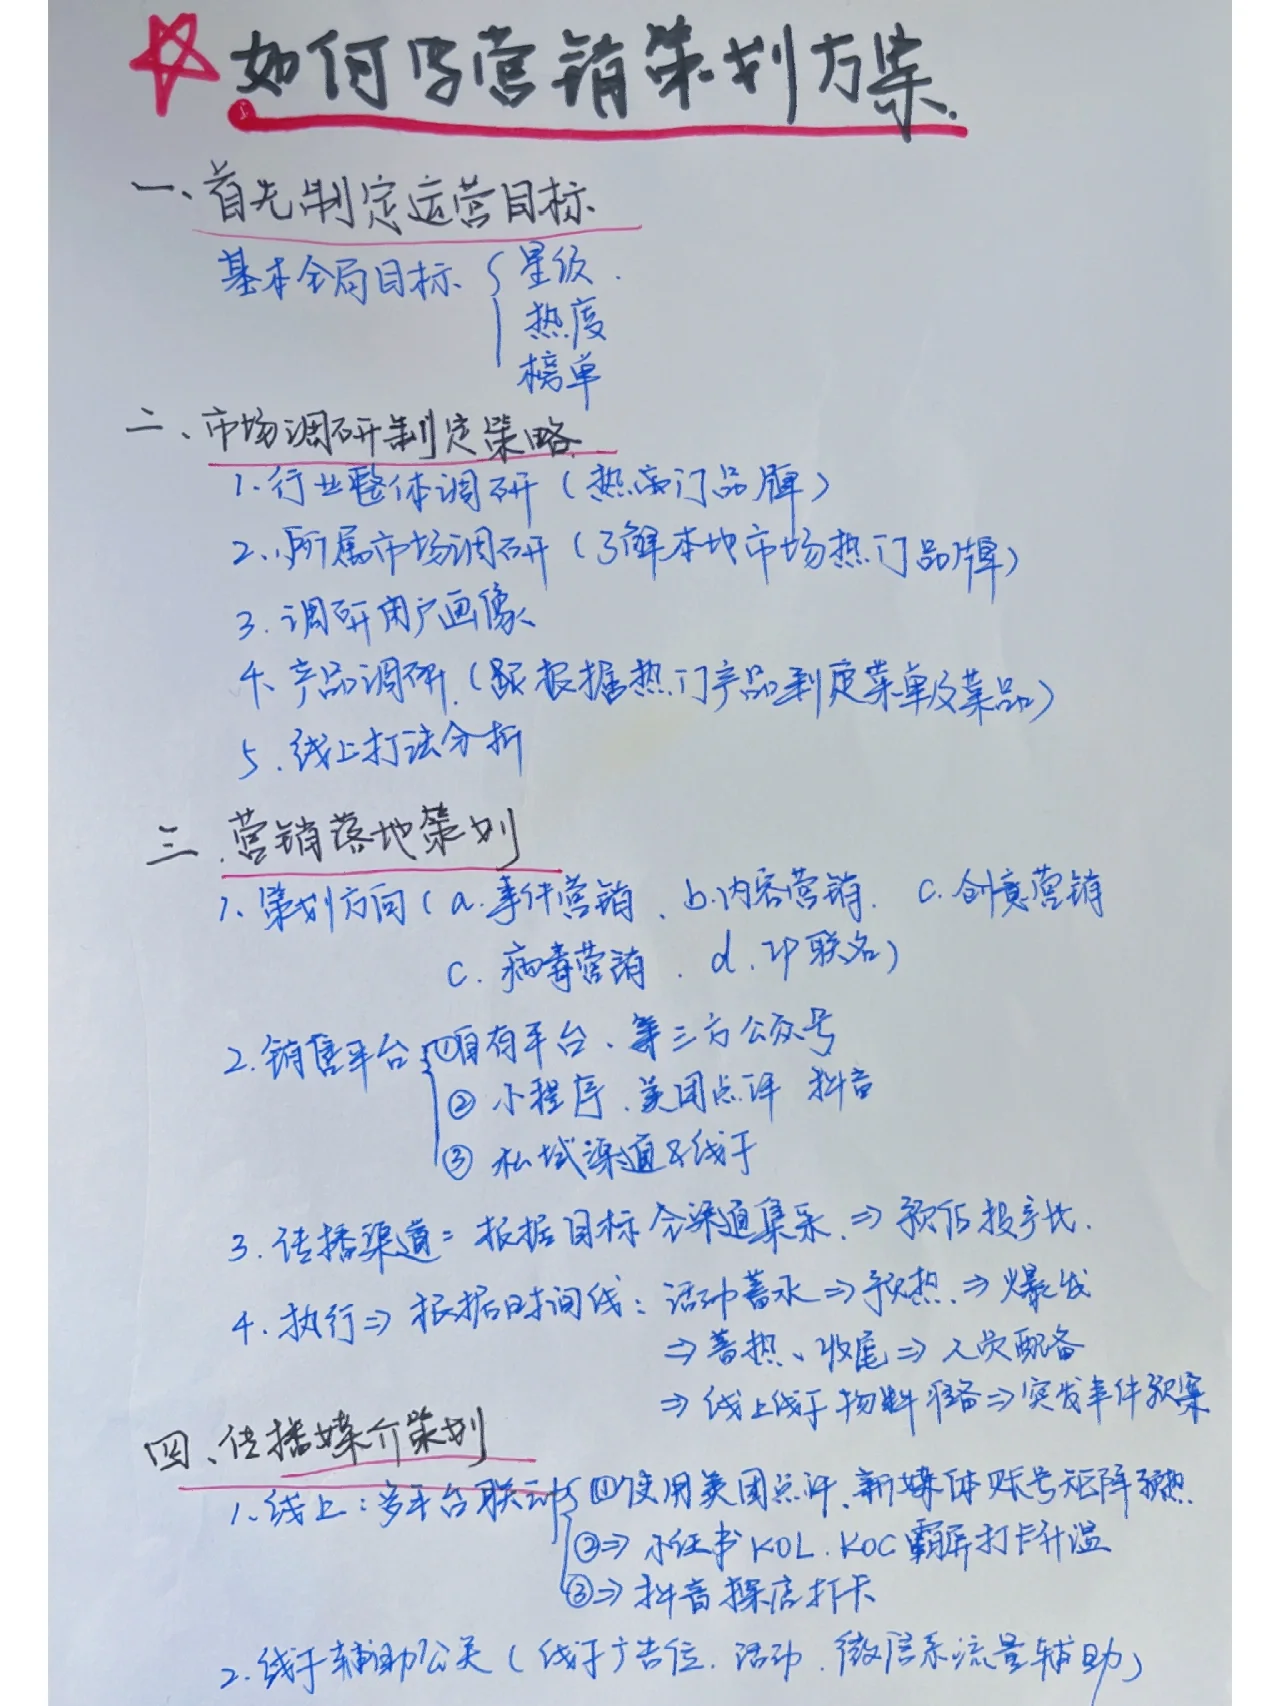 如何写营销策划方案.
一、首先制定运营目标
基本全局目标 星级.
热度
榜单
二、市场调研制定策略
1.行业整体调研(热门品牌)
2.所属市场调研(了解本地市场热门品牌)
3.调研用户画像
4.产品调研.(根据热门产品制定菜单及菜品)
5.线上打法分析
三.营销落地策划
1、策划方向(a.事件营销、b.内容营销. c.创意营销
c.病毒营销. d.IP联名)
2.销售平台 ①自有平台、第三方公众号
② 小程序.美团点评 抖音
③ 私域渠道&线下
3.传播渠道=根据目标全渠道集采.⇒预估投产比.
4.执行⇒根据时间线:活动蓄水⇒预热.⇒爆发
⇒蓄热、收尾⇒人员配备
⇒线上线下物料准备⇒突发事件预案
四、传播媒介策划
1.线上:多平台联动 ①使用美团点评、新媒体账号矩阵预热
②⇒小红书KOL.KOC霸屏打卡升温
③⇒抖音探店打卡
2.线下辅助公关(线下广告位.活动.微信系流量辅助)